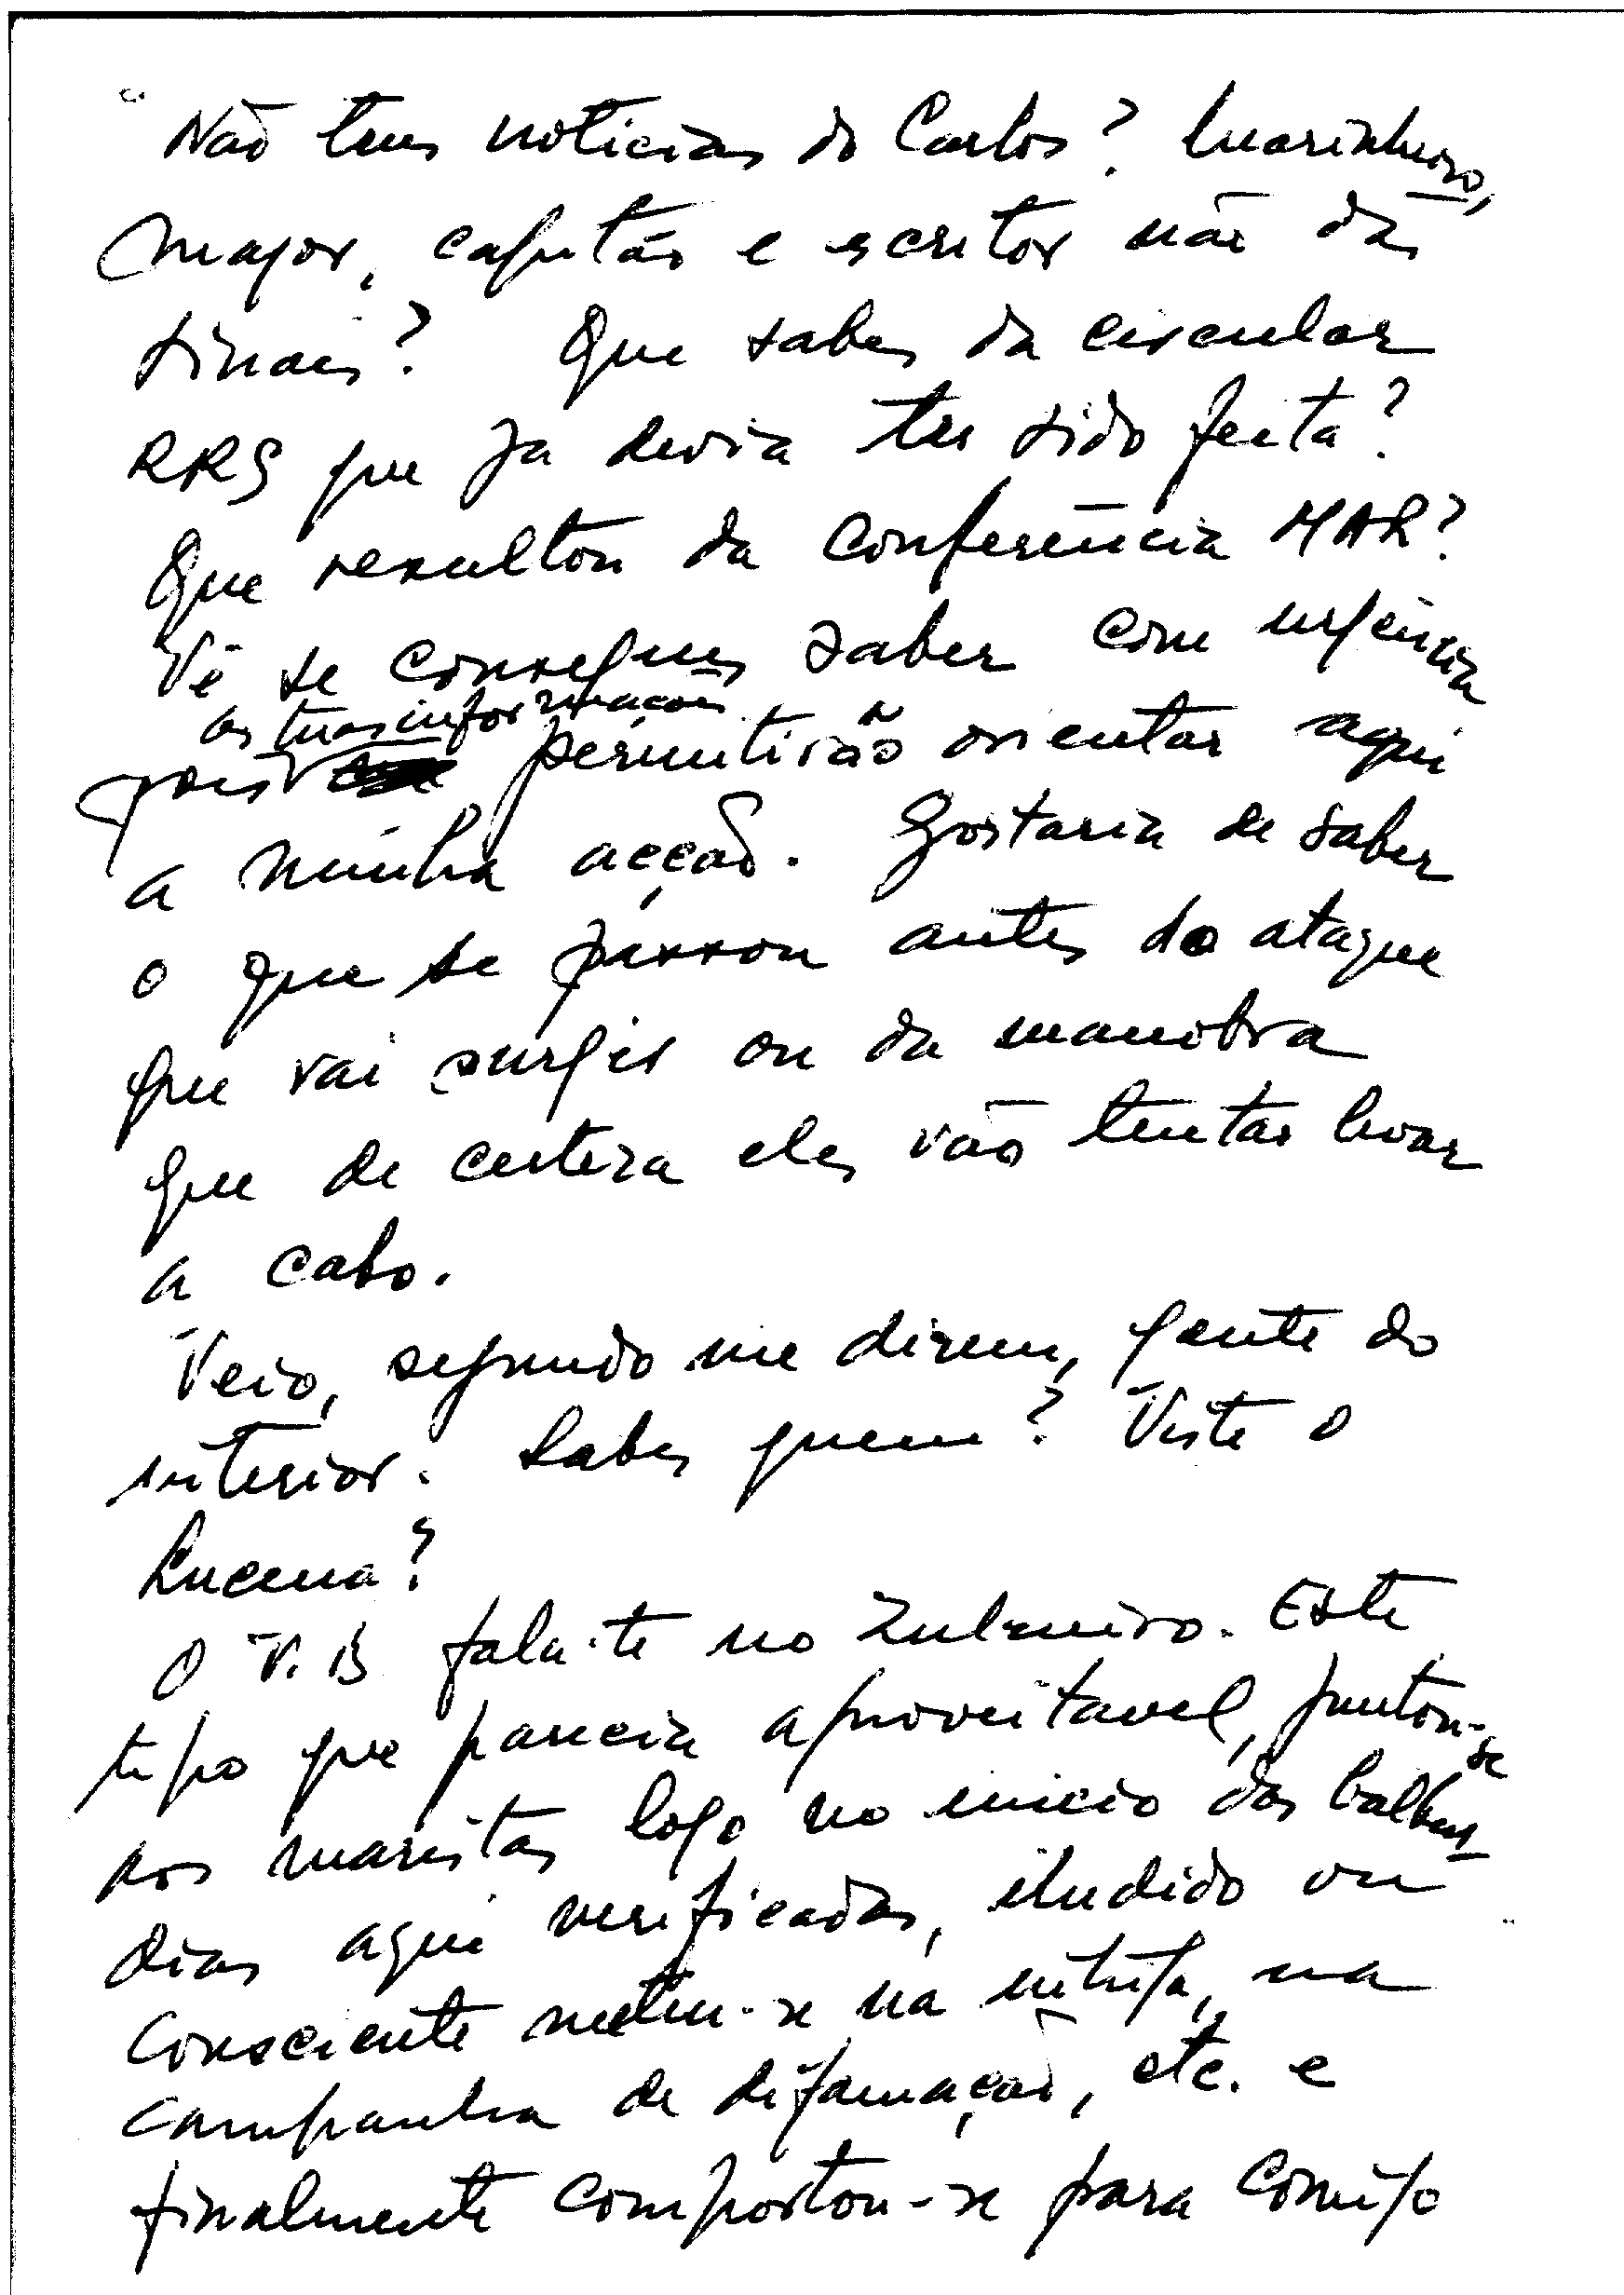 Não tens noticias do Carlos? Marinheiro,
major, capitão e escritor não dá
sinais? Que sabes da circular
RRS que já devia ter sido feita?
Que resultou da Conferência MAR?
Vê se consegues saber com urgência
as tuas informações
pois permitirão orientar aqui
a minha acção. Gostaria de saber
o que se passou antes do ataque
que vai surgir ou da manobra
que de certeza eles vão tentar levar
a cabo.
Veio, segundo me dizem, gente do
interior. Sabes quem? Viste o
Lucena?
O V. B fala-te no Zulmiro. Este
tipo que parecia aproveitavel, juntou-se
aos maristas logo no inicio das balbur-
dias aqui verificadas, iludido ou
consciente meteu-se na intriga, na
campanha de difamação, etc. e
finalmente comportou-se para comigo